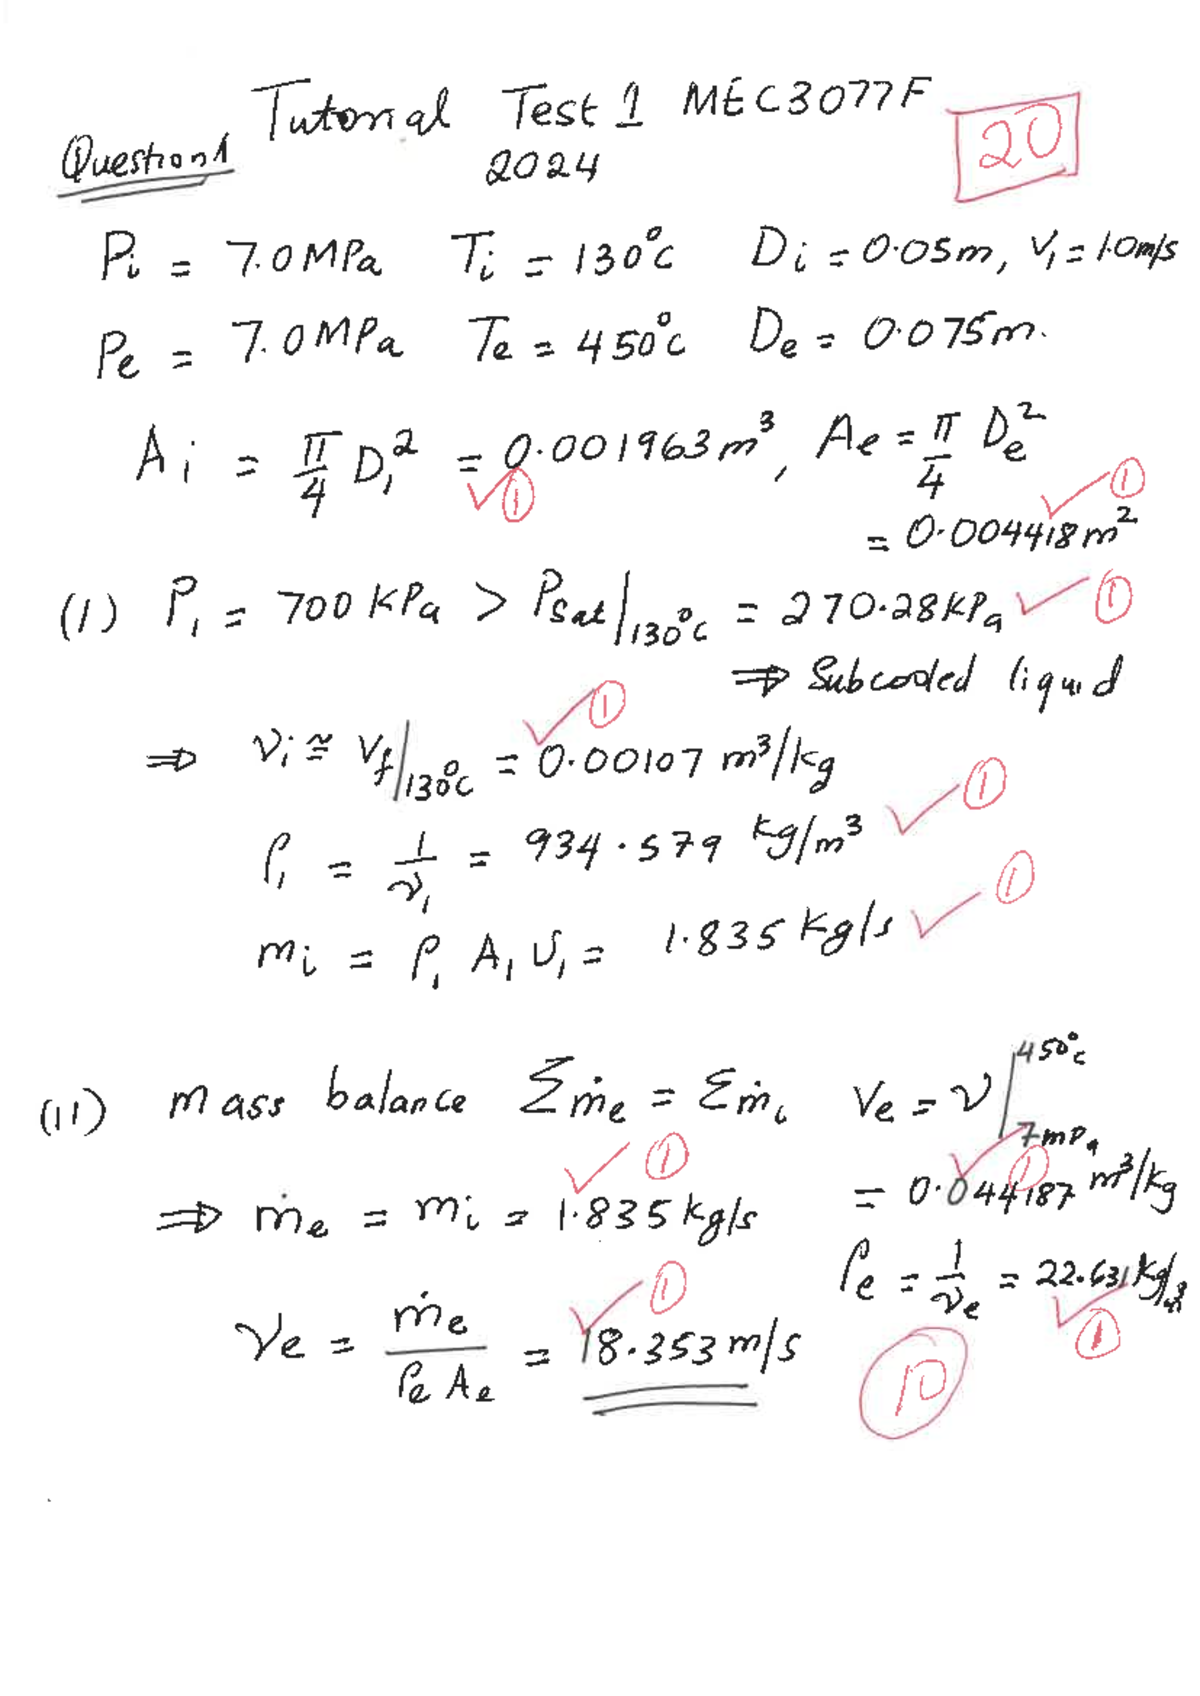 Tutorial Test 1 MEC3077F
Question 1
2024
20
Pi = 7.0MPa Ti = 130°C Di = 0.05m, V₁ = 1.0m/s
Pe = 7.0MPa Te = 450°C De = 0.075m.
Ai = π/4 D₁² = 0.001963m³, Ae = π/4 De²
✓① ✓①
= 0.004418m²
(1) P₁ = 700 KPa > Psat|130°C = 270.28KPa ✓①
⇒ Subcooled liquid
⇒ νi ≅ Vf|130°C = 0.00107 m³/kg ✓①
ρ₁ = 1/ν₁ = 934.579 kg/m³ ✓①
mi = ρ₁ A₁ V₁ = 1.835 Kg/s ✓①
(11) mass balance Σṁe = Σṁi Ve = ν|450°C 7MPa
✓① ✓①
⇒ ṁe = mi = 1.835 kg/s = 0.044187 m³/kg
ρe = 1/νe = 22.631 kg/m³
✓①
Ve = ṁe/ρe Ae = 18.353 m/s
✓①
10